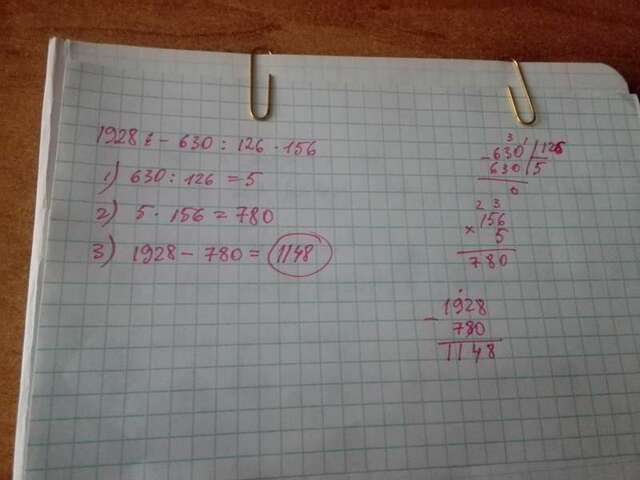 1928 - 630 : 126 · 156
1) 630 : 126 = 5
2) 5 · 156 = 780
3) 1928 - 780 = 1148
3 1
- 630 | 126
630 | 5
0
2 3
× 156
5
780
- 1928
780
1148